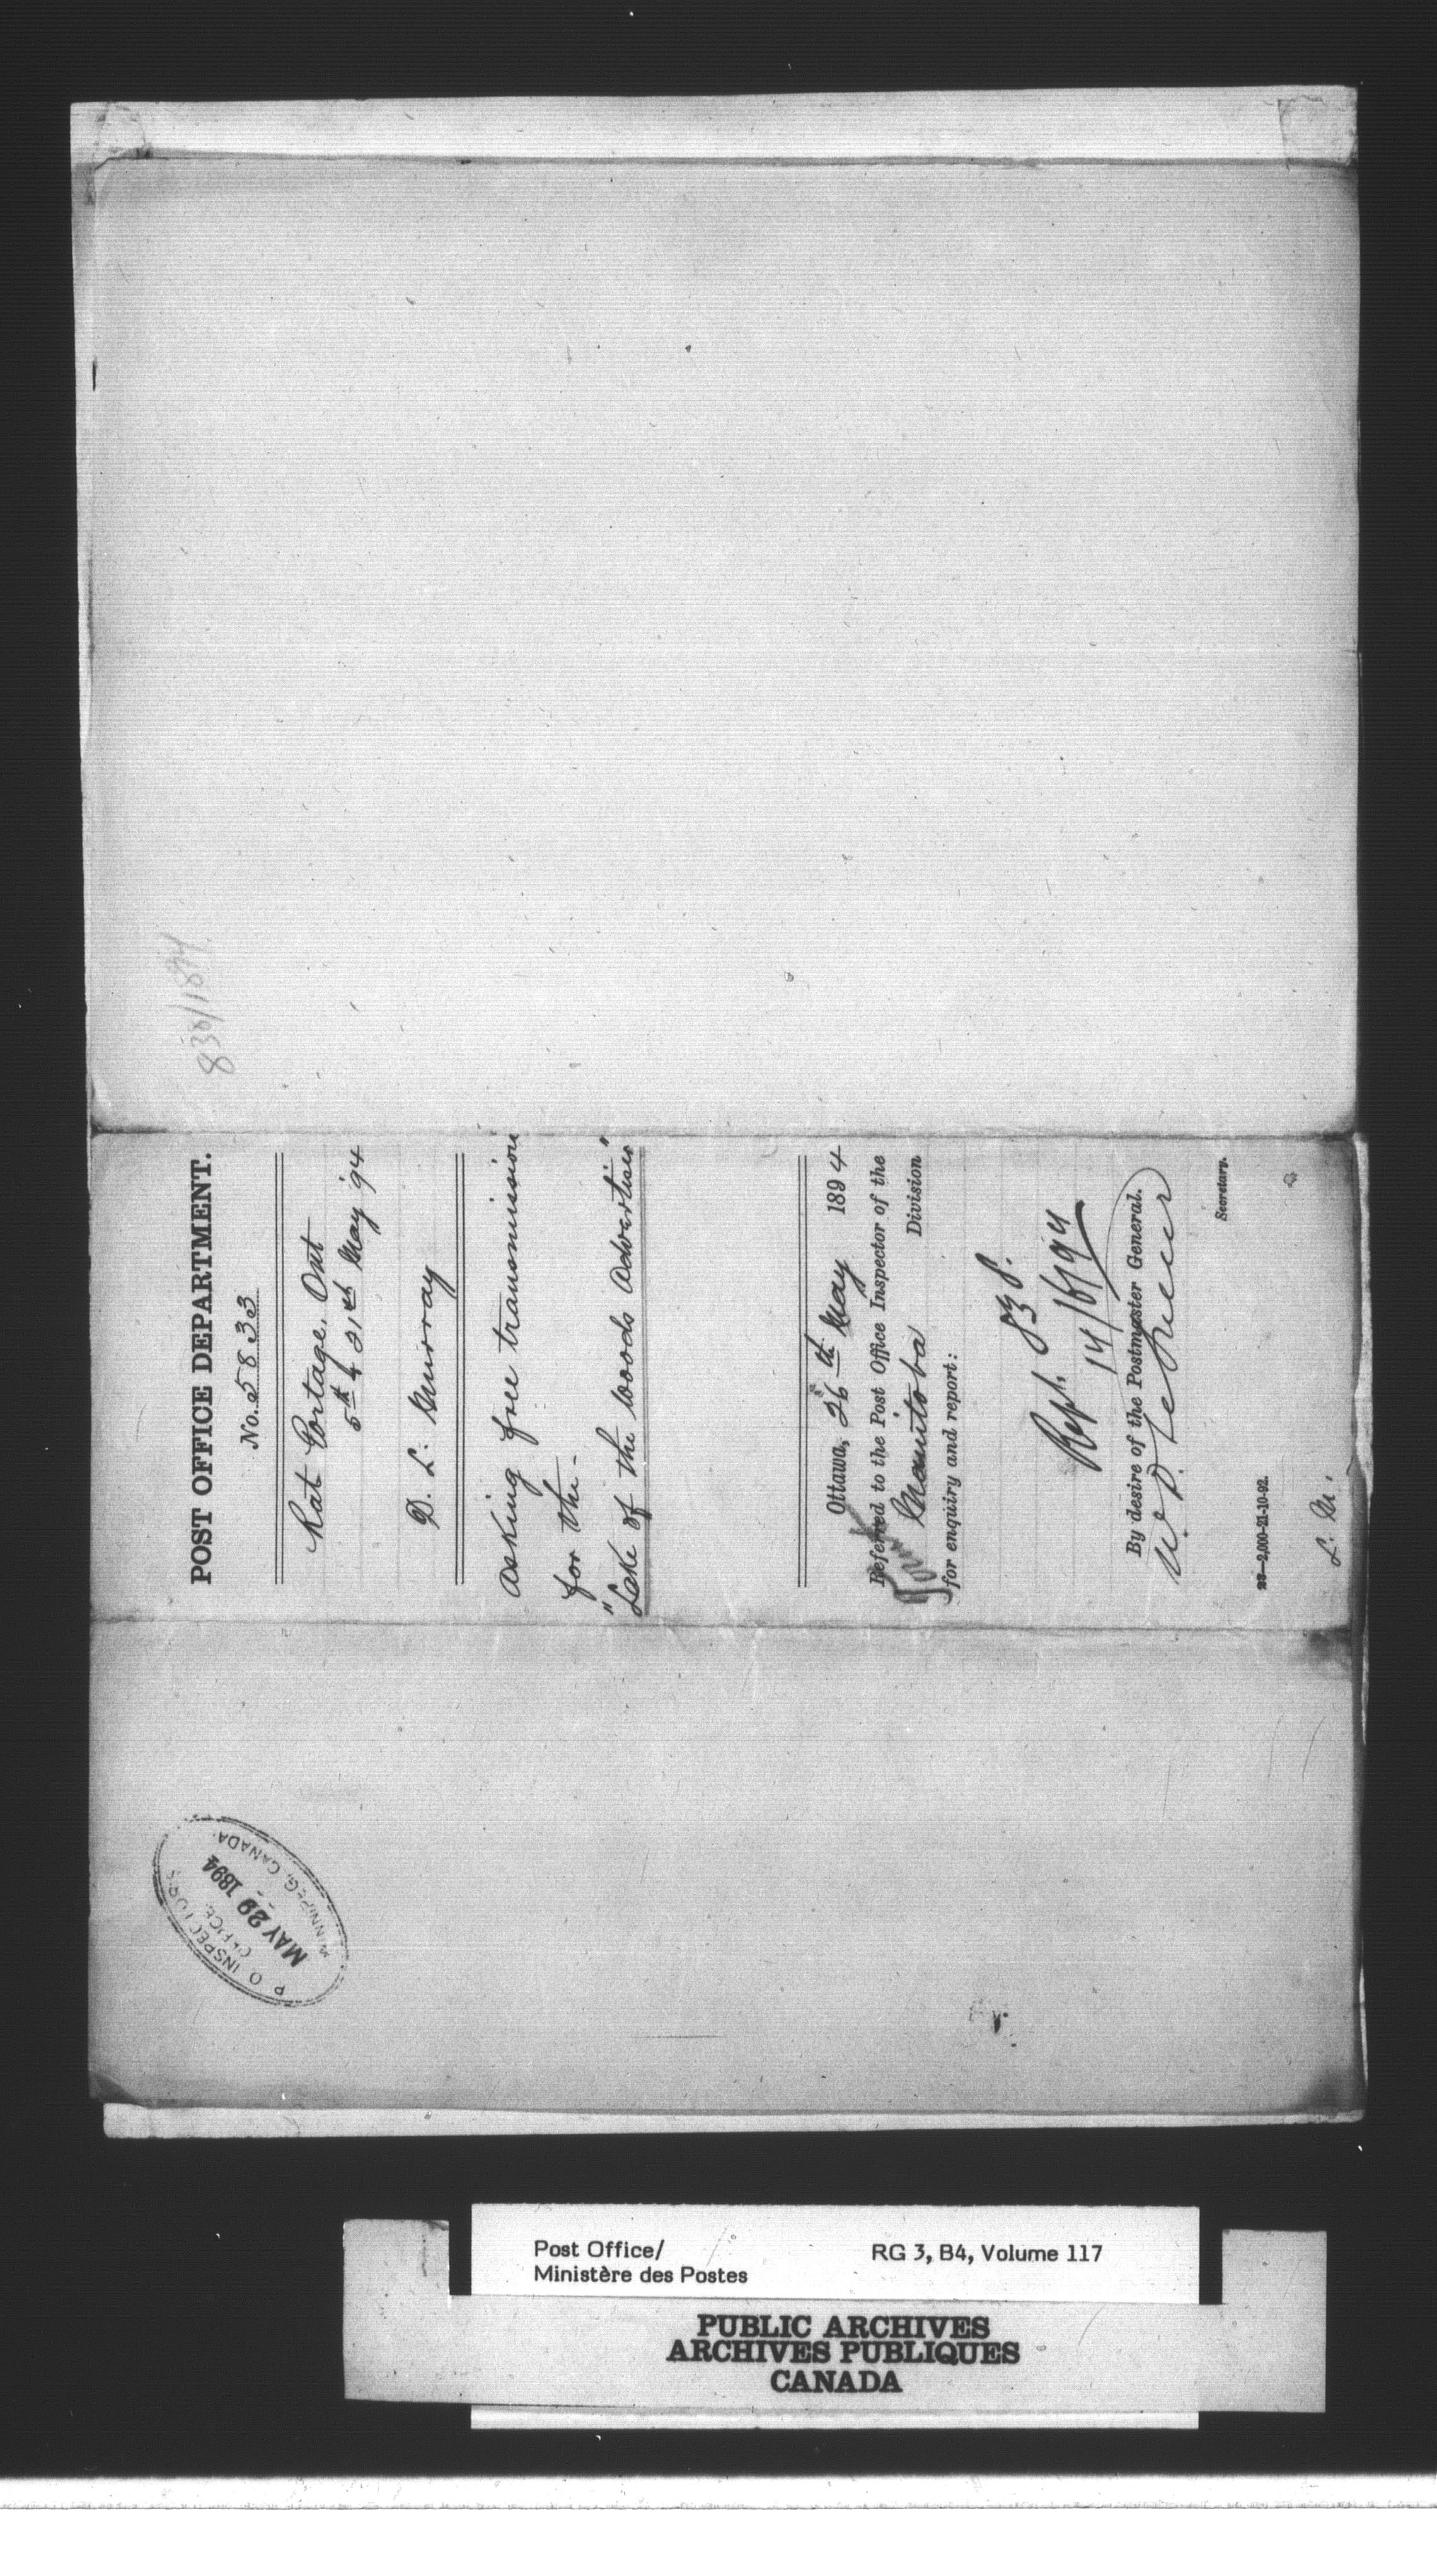 838/1894
POST OFFICE DEPARTMENT.
No. 5833
Rat Portage, Ont
5th & 21st May '94
D. L. Murray
Asking free transmission
for the -
"Lake of the Woods Advertiser"
Ottawa, 26th May 1894
Referred to the Post Office Inspector of the
Manitoba Division
for enquiry and report:
Rept. 838.
14/6/94
By desire of the Postmaster General.
Secretary.
23—2,000-21-10-92.
L. M.
P. O. INSPECTOR'S
OFFICE
MAY 29 1894
WINNIPEG, CANADA
Post Office/
Ministère des Postes
RG 3, B4, Volume 117
PUBLIC ARCHIVES
ARCHIVES PUBLIQUES
CANADA